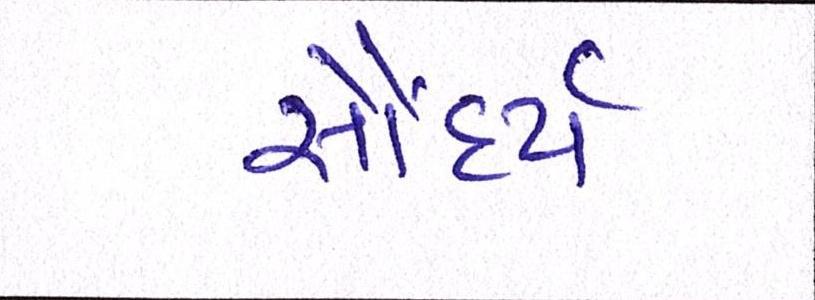 સૌંદર્ય